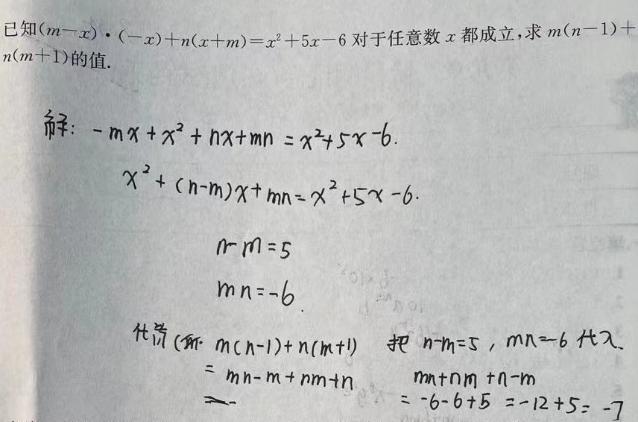 已知(m－x)·(－x)＋n(x＋m)＝x²＋5x－6 对于任意数 x 都成立,求 m(n－1)＋
n(m＋1)的值.
解: -mx+x²+nx+mn=x²+5x-6.
x²+(n-m)x+mn=x²+5x-6.
n-m=5
mn=-6.
m(n-1)+n(m+1) 把 n-m=5, mn=-6 代入.
= mn-m+nm+n mn+nm+n-m
= -6-6+5 = -12+5= -7